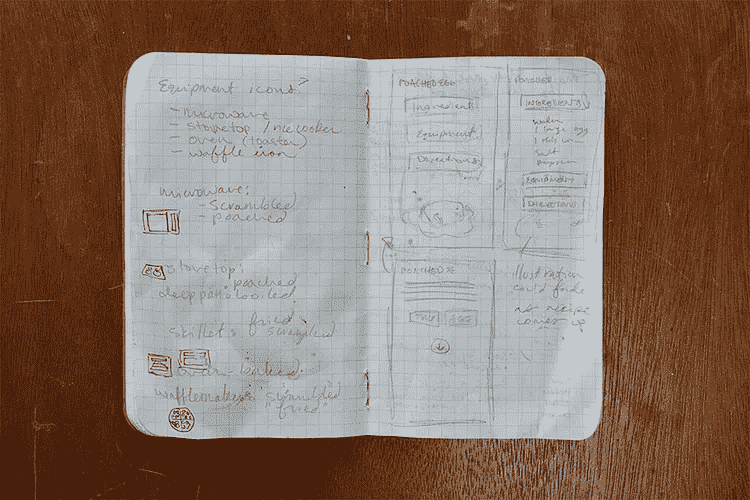 Equipment icons?
- microwave
- stovetop / rice cooker
- oven (toaster)
- waffle iron
microwave:
- scrambled
- poached
stovetop:
poached
boiled
fried
skillet: scrambled
baked
wafflemaker: scrambled
"fried"
POACHED EGG
Ingredients
Equipment
Directions
INGREDIENTS
water
1 large egg
salt
EQUIPMENT
DIRECTIONS
POACHED
illustration
could fade
as recipe
comes up